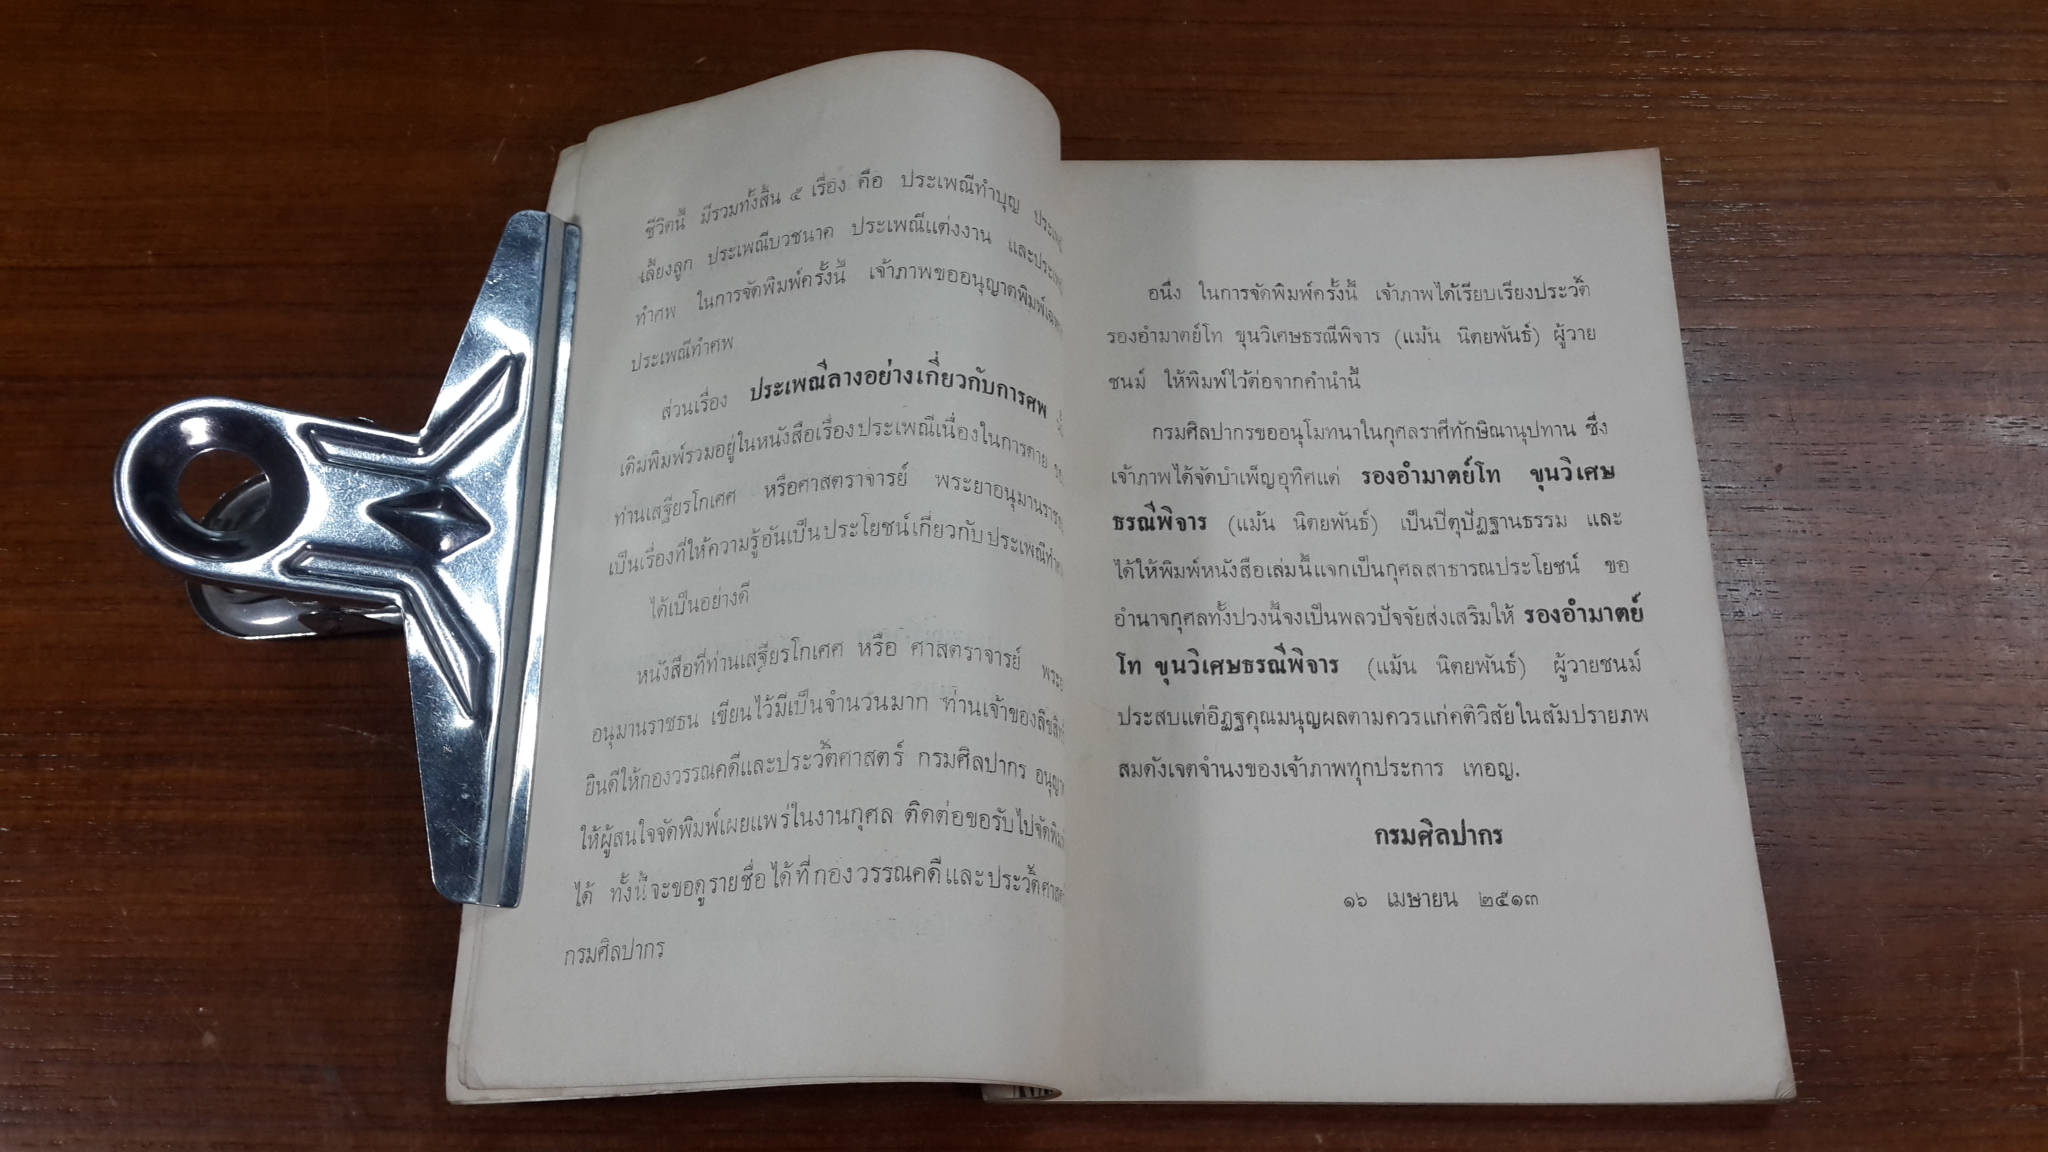 ชีวิตนี้ มีรวมทั้งสิ้น ๕ เรื่อง คือ ประเพณีทำบุญ
เลี้ยงลูก ประเพณีบวชนาค ประเพณีแต่งงาน และประเพณี
ทำศพ ในการจัดพิมพ์ครั้งนี้ เจ้าภาพขออนุญาตพิมพ์
ประเพณีทำศพ
ส่วนเรื่อง ประเพณีลางอย่างเกี่ยวกับการศพ
เดิมพิมพ์รวมอยู่ในหนังสือเรื่องประเพณีเนื่องในการตาย
ท่านเสฐียรโกเศศ หรือศาสตราจารย์ พระยาอนุมานราชธน
เป็นเรื่องที่ให้ความรู้อันเป็นประโยชน์เกี่ยวกับประเพณีทำศพ
ได้เป็นอย่างดี
หนังสือที่ท่านเสฐียรโกเศศ หรือ ศาสตราจารย์
อนุมานราชธน เขียนไว้มีเป็นจำนวนมาก ท่านเจ้าของลิขสิทธิ์
ยินดีให้กองวรรณคดีและประวัติศาสตร์ กรมศิลปากร
ให้ผู้สนใจจัดพิมพ์เผยแพร่ในงานกุศล ติดต่อขอรับไปจัดพิมพ์
ได้ ทั้งนี้จะขอดูรายชื่อได้ที่กองวรรณคดีและประวัติศาสตร์
กรมศิลปากร
อนึ่ง ในการจัดพิมพ์ครั้งนี้ เจ้าภาพได้เรียบเรียงประวัติ
รองอำมาตย์โท ขุนวิเศษธรณีพิจาร (แม้น นิตยพันธ์) ผู้วาย
ชนม์ ให้พิมพ์ไว้ต่อจากคำนำนี้
กรมศิลปากรขออนุโมทนาในกุศลราศีทักษิณานุปทาน ซึ่ง
เจ้าภาพได้จัดบำเพ็ญอุทิศแด่ รองอำมาตย์โท ขุนวิเศษ
ธรณีพิจาร (แม้น นิตยพันธ์) เป็นปีตุปัฏฐานธรรม และ
ได้ให้พิมพ์หนังสือเล่มนี้แจกเป็นกุศลสาธารณประโยชน์ ขอ
อำนาจกุศลทั้งปวงนี้จงเป็นพลวปัจจัยส่งเสริมให้ รองอำมาตย์
โท ขุนวิเศษธรณีพิจาร (แม้น นิตยพันธ์) ผู้วายชนม์
ประสบแต่อิฏฐคุณมนุญผลตามควรแก่คติวิสัยในสัมปรายภพ
สมดังเจตจำนงของเจ้าภาพทุกประการ เทอญ.
กรมศิลปากร
๑๖ เมษายน ๒๕๑๓